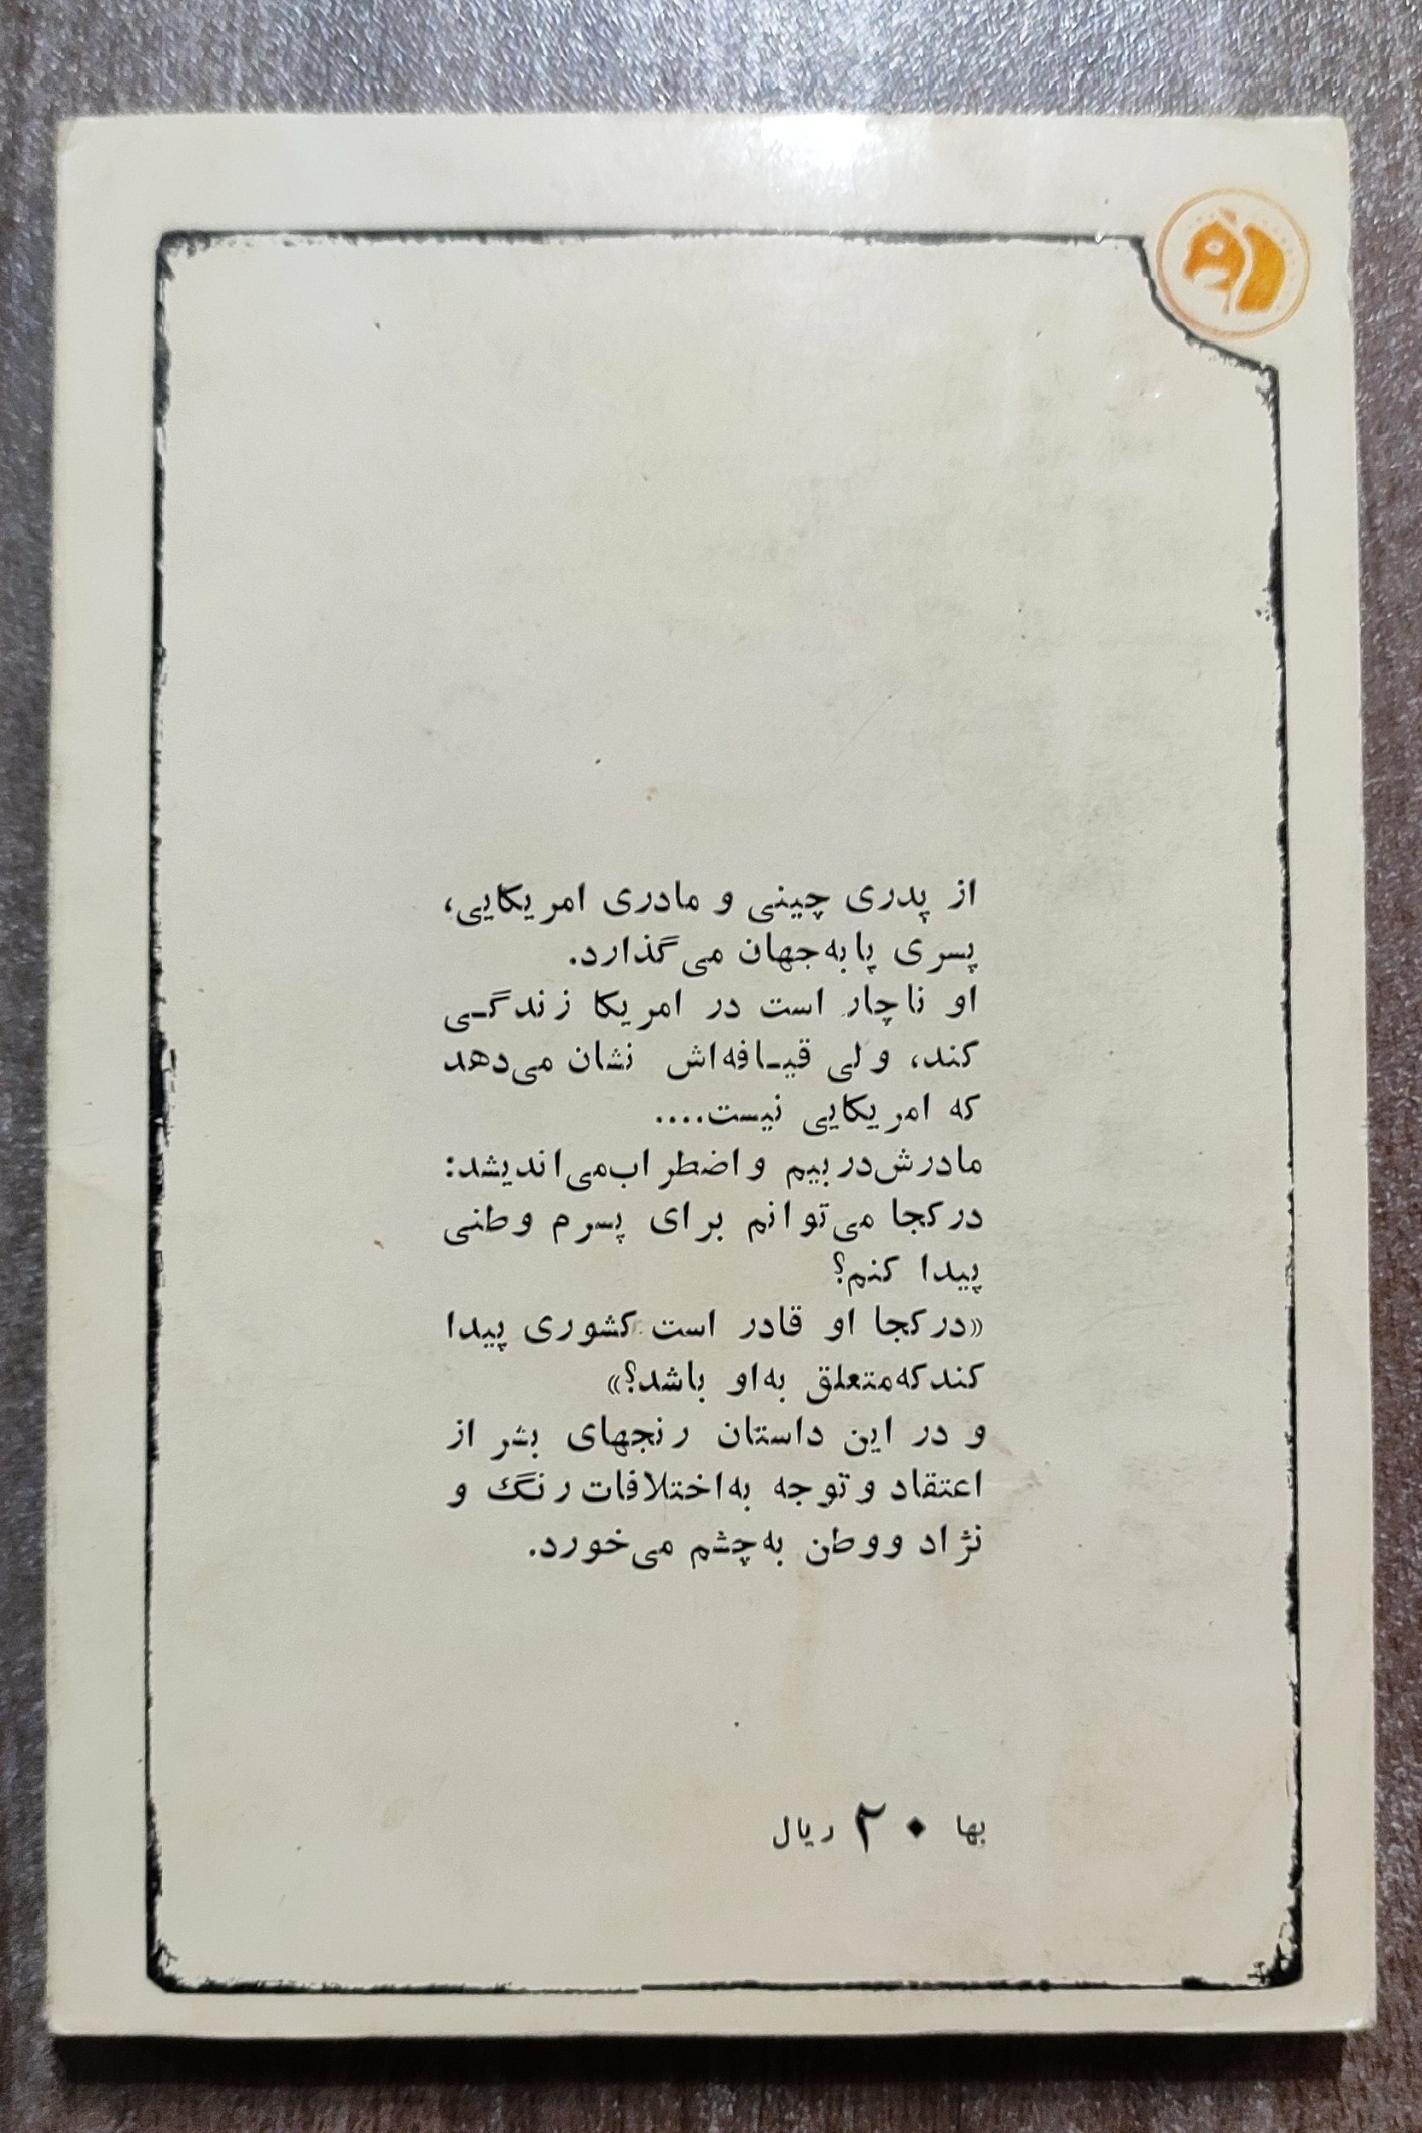 از پدری چینی و مادری امریکایی،
پسری پا به‌جهان می‌گذارد.
او ناچار است در امریکا زندگـی
کند، ولی قیـافه‌اش نشان می‌دهد
که امریکایی نیست....
مادرش در بیم و اضطراب می‌اندیشد:
در کجا می‌توانم برای پسرم وطنی
پیدا کنم؟
«در کجا او قادر است کشوری پیدا
کند که متعلق به‌او باشد؟»
و در این داستان رنجهای بشر از
اعتقاد و توجه به‌اختلافات رنگ و
نژاد و وطن به‌چشم می‌خورد.
بها ۲۰ ریال